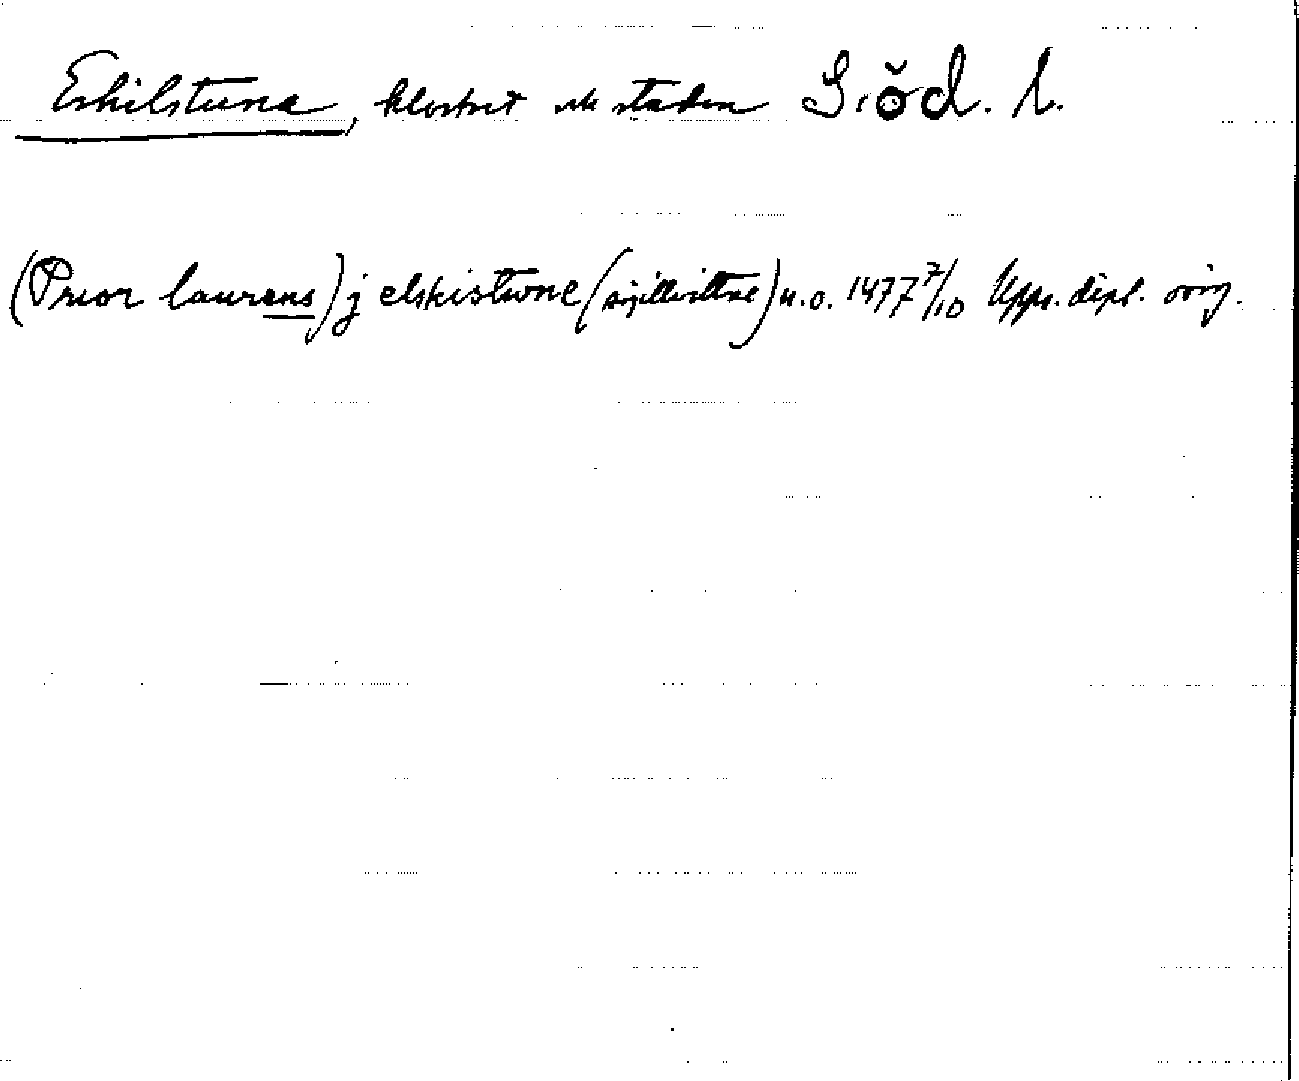 Eskilstuna, klostret och staden Söd. l.
(Prior laurens) j elskistwne (sigillvittne) u.o. 1477 7/10 Upps. dipl. orig.